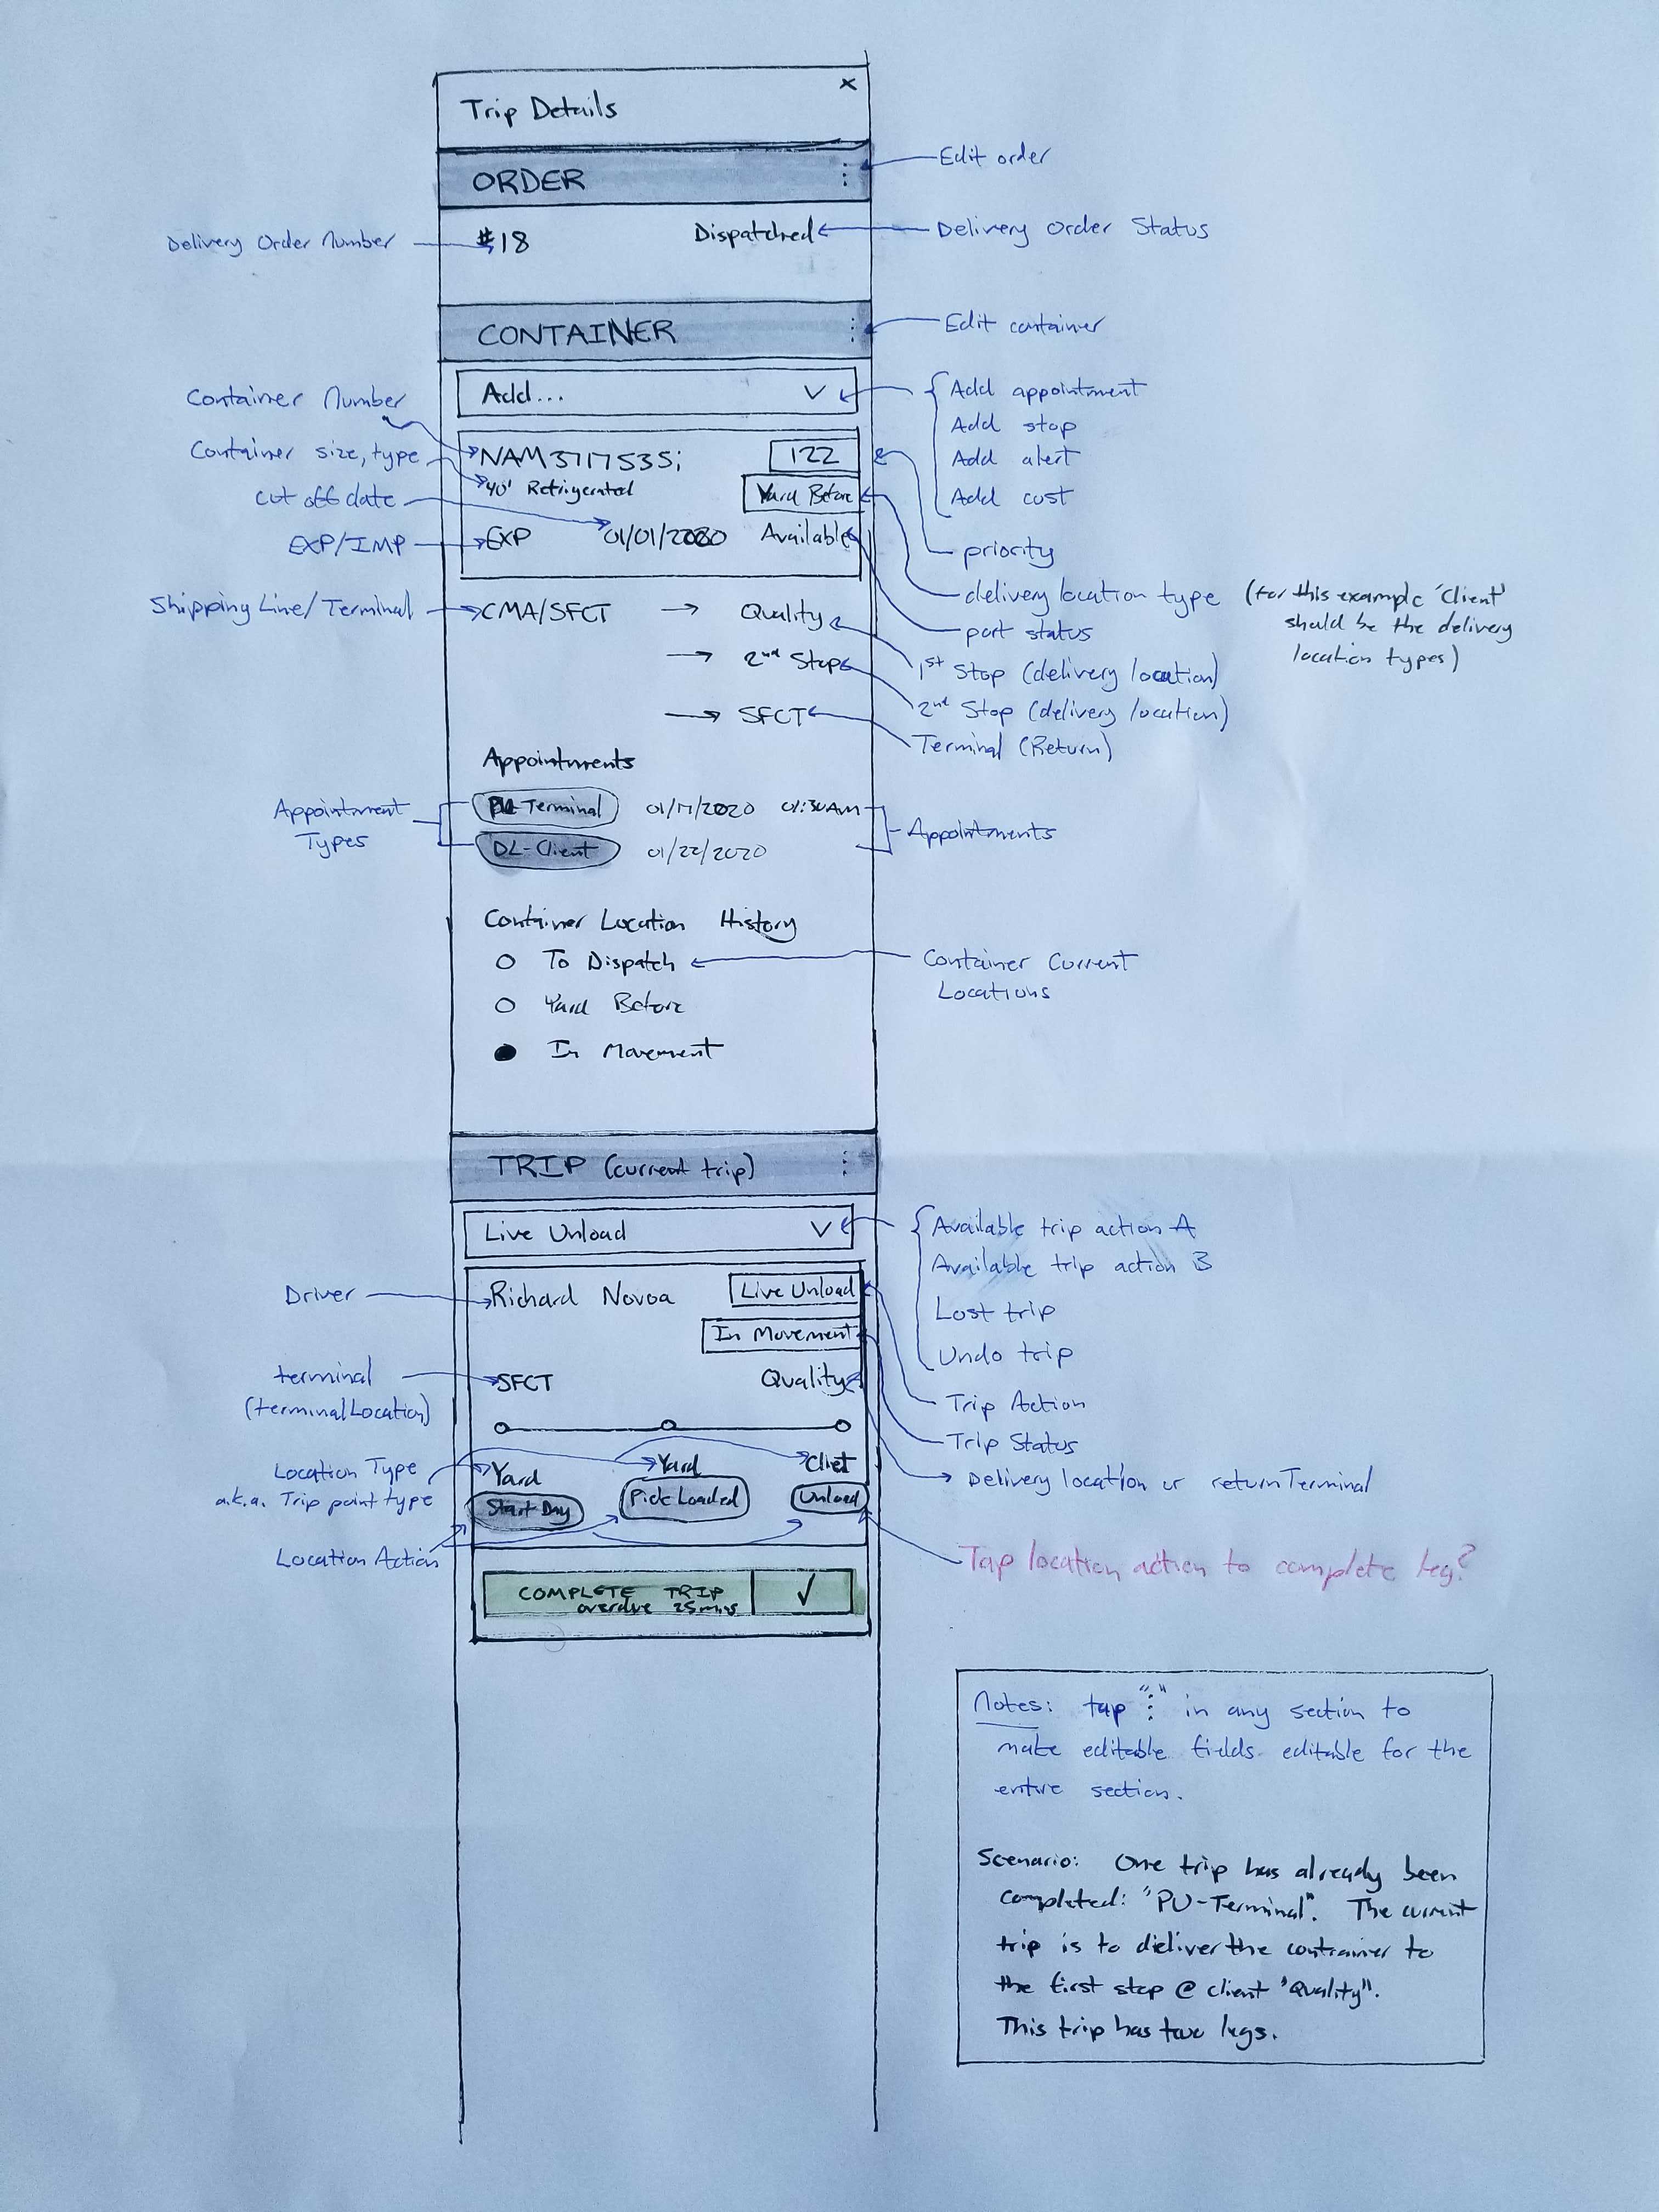 Trip Details
x
ORDER
Edit order
Delivery Order Number
#18
Dispatched
Delivery Order Status
CONTAINER
Edit container
Add...
Add appointment
Add stop
Add alert
Add cost
Container Number
NAM3717535;
122
priority
Container size, type
40' Refrigerated
Yard Before
delivery location type
(for this example 'Client'
should be the delivery
location types)
cut off date
EXP/IMP
EXP
01/01/2020
Available
port status
Shipping Line/Terminal
CMA/SFCT → Quality
1st Stop (delivery location)
→ 2nd Stop
2nd Stop (delivery location)
→ SFCT
Terminal (Return)
Appointments
Appointment
Types
PU-Terminal
01/17/2020
01:30AM
DL-Client
01/22/2020
Appointments
Container Location History
To Dispatch
Container Current
Locations
Yard Before
In Movement
TRIP (current trip)
Live Unload
Available trip action A
Available trip action B
Lost trip
Undo trip
Driver
Richard Novoa
Live Unload
Trip Action
In Movement
Trip Status
terminal
(terminalLocation)
SFCT
Quality
Delivery location or returnTerminal
Location Type
a.k.a. Trip point type
Yard
Yard
Cliet
Location Action
Start Day
Pick Loaded
Unload
Tap location action to complete leg?
COMPLETE TRIP
overdue 25mins
✓
Notes: tap "⋮" in any section to
make editable fields editable for the
entire section.
Scenario: One trip has already been
completed: "PU-Terminal". The current
trip is to deliver the container to
the first stop @ client "Quality".
This trip has two legs.